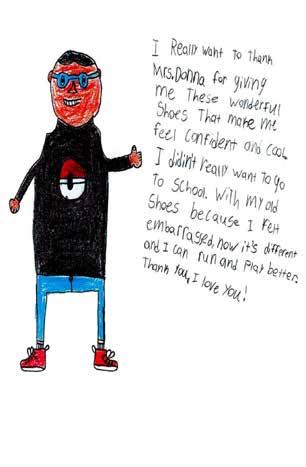 I Really want to thank
Mrs. Donna for giving
me These wonderful
Shoes That make me
feel confident and cool.
I didn't really want to go
To school. With my old
Shoes because I felt
embarrassed, now it's different
and I can run and play better.
Thank You, I love you!